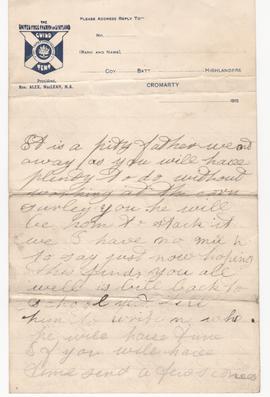 THE
UNITED FREE CHURCH OF SCOTLAND
GUILD
TENT
President,
Rev. ALEX. MacLEAN, M.A.
PLEASE ADDRESS REPLY TO—
No.
(RANK AND NAME)
COY BATT HIGHLANDERS
CROMARTY
191
It is a pity father went
away as you will have
plenty to do without
working at the corn
surley you he will
be hom to stack it
we I have no much
to say just now hoping
this finds you all
well is bill back to
school and tell
him to write me who
he will have time
& if you will have
time send a few